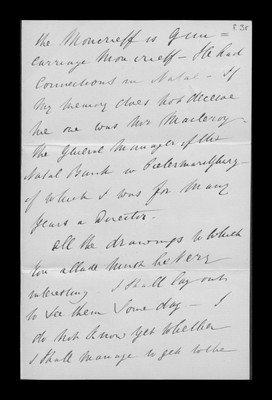 the Moncrieff is Gun =
carriage Moncrieff - He had
Connections in Natal - If
my memory does not deceive
me one was Mr. Macleroy -
the General Manager of the
Natal Bank in Pietermaritzburg -
of which I was for many
years a Director -
All the drawings to which
you allude must be very
interesting I shall try out
to see them some day - I
do not know yet whether
I shall manage to get to the